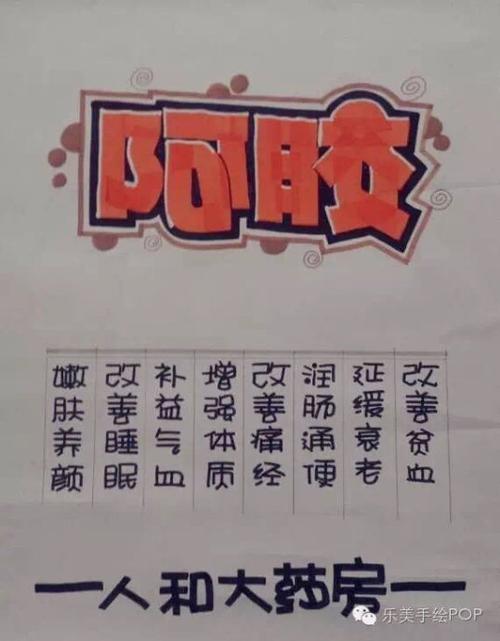 阿胶
改善贫血
延缓衰老
润肠通便
改善痛经
增强体质
补益气血
改善睡眠
嫩肤养颜
一人和大药房一
乐美手绘POP